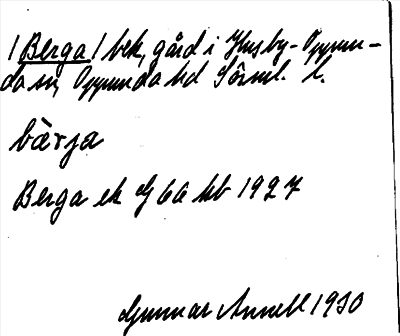 / Berga / bek, gård i Husby-Oppun-
da sn, Oppunda hd Sörml. l.
bàrja
Berga ek G 6a kb 1927
Gunnar Annell 1930